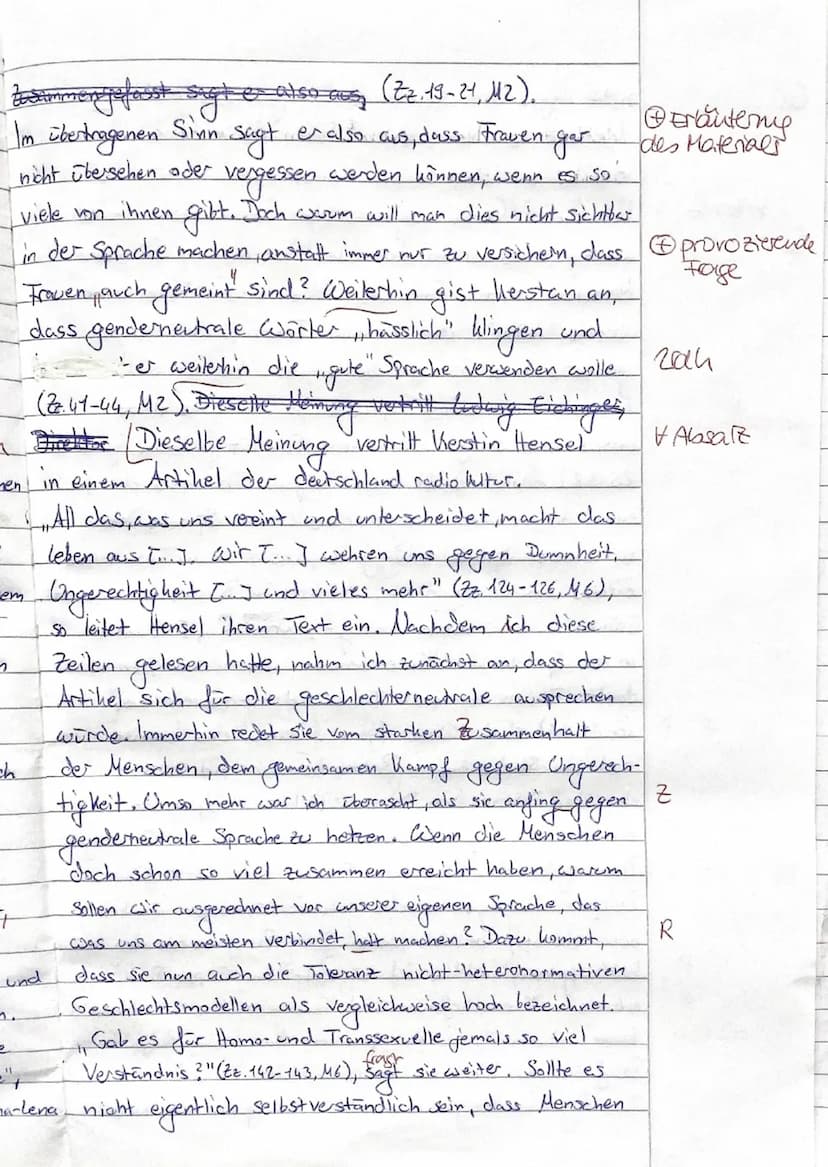 Zusammengefasst sagt er also aus, (Zz. 19-21, M2).
Im übertragenen Sinn sagt er also aus, dass Frauen gar
⊕ Erläuterung
des Materials
nicht übersehen oder vergessen werden können, wenn es so
viele von ihnen gibt. Doch warum will man dies nicht sichtbar
in der Sprache machen, anstatt immer nur zu versichern, dass
⊕ provozierende
Frage
Frauen „auch gemeint" sind? Weiterhin gist Kerstan an,
dass genderneutrale Wörter „hässlich" klingen und
er weiterhin die „gute" Sprache verwenden wolle
(Zz. 41-44, M2). Dieselbe Meinung vertritt Ludwig Eichinger,
Direktor [Dieselbe Meinung vertritt Kerstin Hensel
Absatz
nen in einem Artikel der deutschland radio kultur.
„All das, was uns vereint und unterscheidet, macht das
Leben aus [...]. Wir [...] wehren uns gegen Dummheit,
em Ungerechtigkeit [...] und vieles mehr" (Zz. 124-126, M6),
so leitet Hensel ihren Text ein. Nachdem ich diese
n Zeilen gelesen hatte, nahm ich zunächst an, dass der
Artikel sich für die geschlechterneutrale ausprechen
würde. Immerhin redet sie vom starken Zusammenhalt
ch der Menschen, dem gemeinsamen Kampf gegen Ungerech-
tigkeit. Umso mehr war ich überascht, als sie anfing gegen Z
genderneutrale Sprache zu hetzen. Wenn die Menschen
doch schon so viel zusammen erreicht haben, warum
sollen wir ausgerechnet vor unserer eigenen Sprache, das
was uns am meisten verbindet, halt machen? Dazu kommt, R
und dass sie nun auch die Toleranz nicht-heteronormativen
n. Geschlechtsmodellen als vergleichweise hoch bezeichnet.
e „Gab es für Homo- und Transsexuelle jemals so viel
fragt
", Verständnis?" (Zz. 142-143, M6), sagt sie weiter. Sollte es
na-Lena nicht eigentlich selbstverständlich sein, dass Menschen